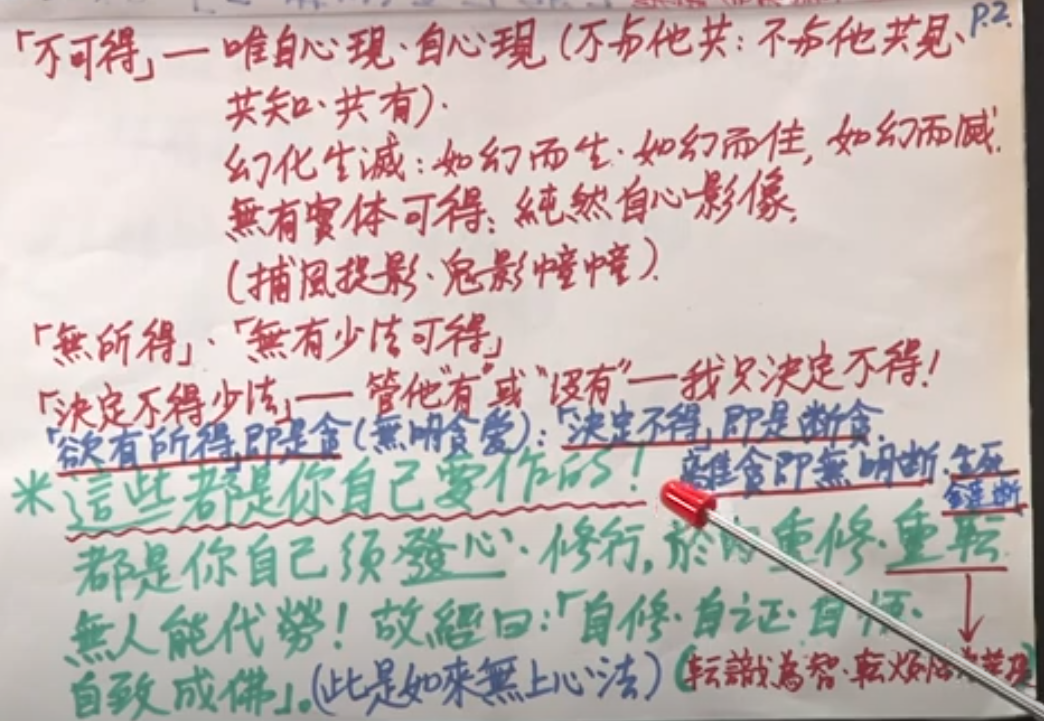 P.2.
「不可得」— 唯自心現·自心現 (不与他共: 不与他共見、
共知、共有).
幻化生滅: 如幻而生·如幻而住, 如幻而滅.
無有實体可得; 純然自心影像.
(捕風捉影·鬼影幢幢).
「無所得」·「無有少法可得」
「決定不得少法」— 管他"有"或"沒有"— 我只決定不得!
「欲有所得」即是貪 (無明貪愛): 「決定不得」即是断貪.
離貪即無明断·生死
鏈断
＊這些都是你自己要作的!
都是你自己須發心·修行, 於内重修·重転
無人能代勞! 故經曰:「自修·自证·自悟·
自致成佛」。(此是如來無上心法) (転識為智·転煩惱為菩提)